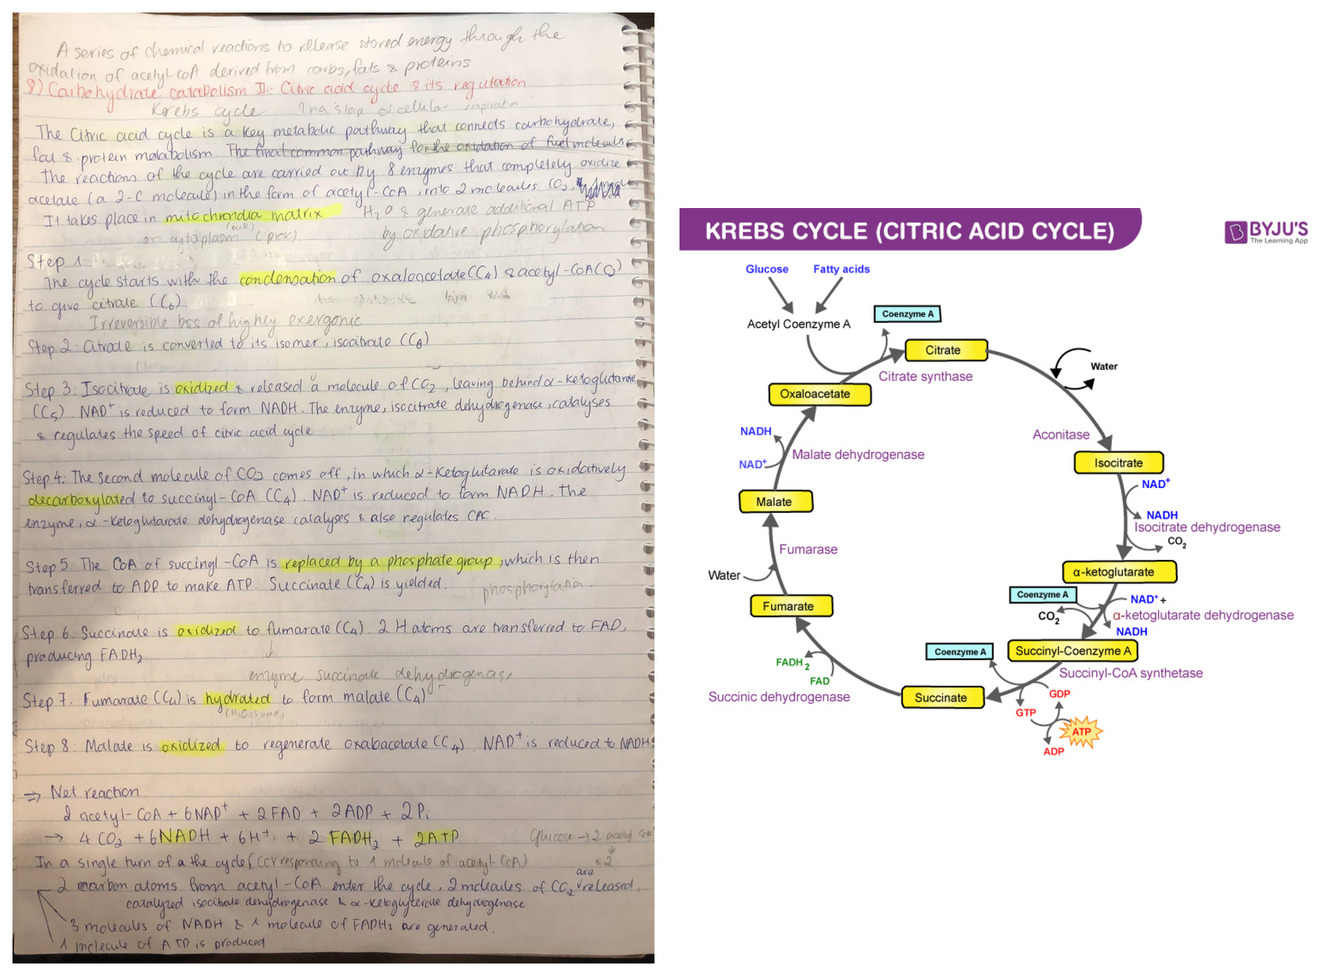 A series of chemical reactions to release stored energy through the
oxidation of acetyl coA derived from carbs, fats & proteins
8) Carbohydrate catabolism II: Citric acid cycle & its regulation
Krebs cycle
The Citric acid cycle is a key metabolic pathway that connects carbohydrate,
fat & protein matabolism. The final common pathway for the oxidation of fuel molecules
The reactions of the cycle are carried out by 8 enzymes that completely oxidize
acetate (a 2-C molecule) in the form of acetyl-CoA, into 2 molecules CO2,
It takes place in mitochrondia matrix H2O & generate additional ATP
or cytoplasm (prok) by oxidative phosphorylation
Step 1:
The cycle starts with the condensation of oxaloacetate (C4) & acetyl-CoA (C2)
to give citrate (C6)
Irreversible bcs of highly exergonic
Step 2: Citrate is converted to its isomer, isocitrate (C6)
Step 3: Isocitrate is oxidized & released a molecule of CO2, leaving behind α-ketoglutarate
(C5). NAD+ is reduced to form NADH. The enzyme, isocitrate dehydrogenase, catalyses
& regulates the speed of citric acid cycle
Step 4: The second molecule of CO2 comes off, in which α-Ketoglutarate is oxidatively
decarboxylated to succinyl-CoA (C4). NAD+ is reduced to form NADH. The
enzyme, α-Ketoglutarate dehydrogenase catalyses & also regulates CAC.
Step 5. The CoA of succingl-CoA is replaced by a phosphate group, which is then
transferred to ADP to make ATP. Succinate (C4) is yielded.
phosphorylation.
Step 6: Succinate is oxidized to fumarate (C4). 2 H atoms are transferred to FAD,
producing FADH2
enzyme succinate dehydrogenase
Step 7. Fumarate (C4) is hydrated to form malate (C4)
Step 8: Malate is oxidized to regenerate oxaloacetate (C4). NAD+ is reduced to NADH
⇒ Net reaction
2 acetyl-CoA + 6NAD+ + 2FAD + 2ADP + 2Pi
→ 4 CO2 + 6NADH + 6H+ + 2 FADH2 + 2ATP Glucose → 2 acetyl CoA
In a single turn of a the cycle, (corresponding to 1 molecule of acetyl CoA) x2
2 carbon atoms from acetyl-CoA enter the cycle, 2 molecules of CO2 are released,
catalyzed isocitrate dehydrogenase & α-ketoglyterate dehydrogenase
3 molecules of NADH & 1 molecule of FADH2 are generated.
1 molecule of ATP is produced
KREBS CYCLE (CITRIC ACID CYCLE)
BYJU'S
The Learning App
Glucose
Fatty acids
Acetyl Coenzyme A
Coenzyme A
Citrate
Citrate synthase
Water
Oxaloacetate
Aconitase
NADH
NAD+
Malate dehydrogenase
Isocitrate
NAD+
NADH
Isocitrate dehydrogenase
CO2
Malate
Fumarase
Water
α-ketoglutarate
Coenzyme A
NAD+ +
CO2
α-ketoglutarate dehydrogenase
NADH
Fumarate
Succinyl-Coenzyme A
Coenzyme A
Succinyl-CoA synthetase
FADH2
FAD
Succinic dehydrogenase
Succinate
GDP
GTP
ATP
ADP